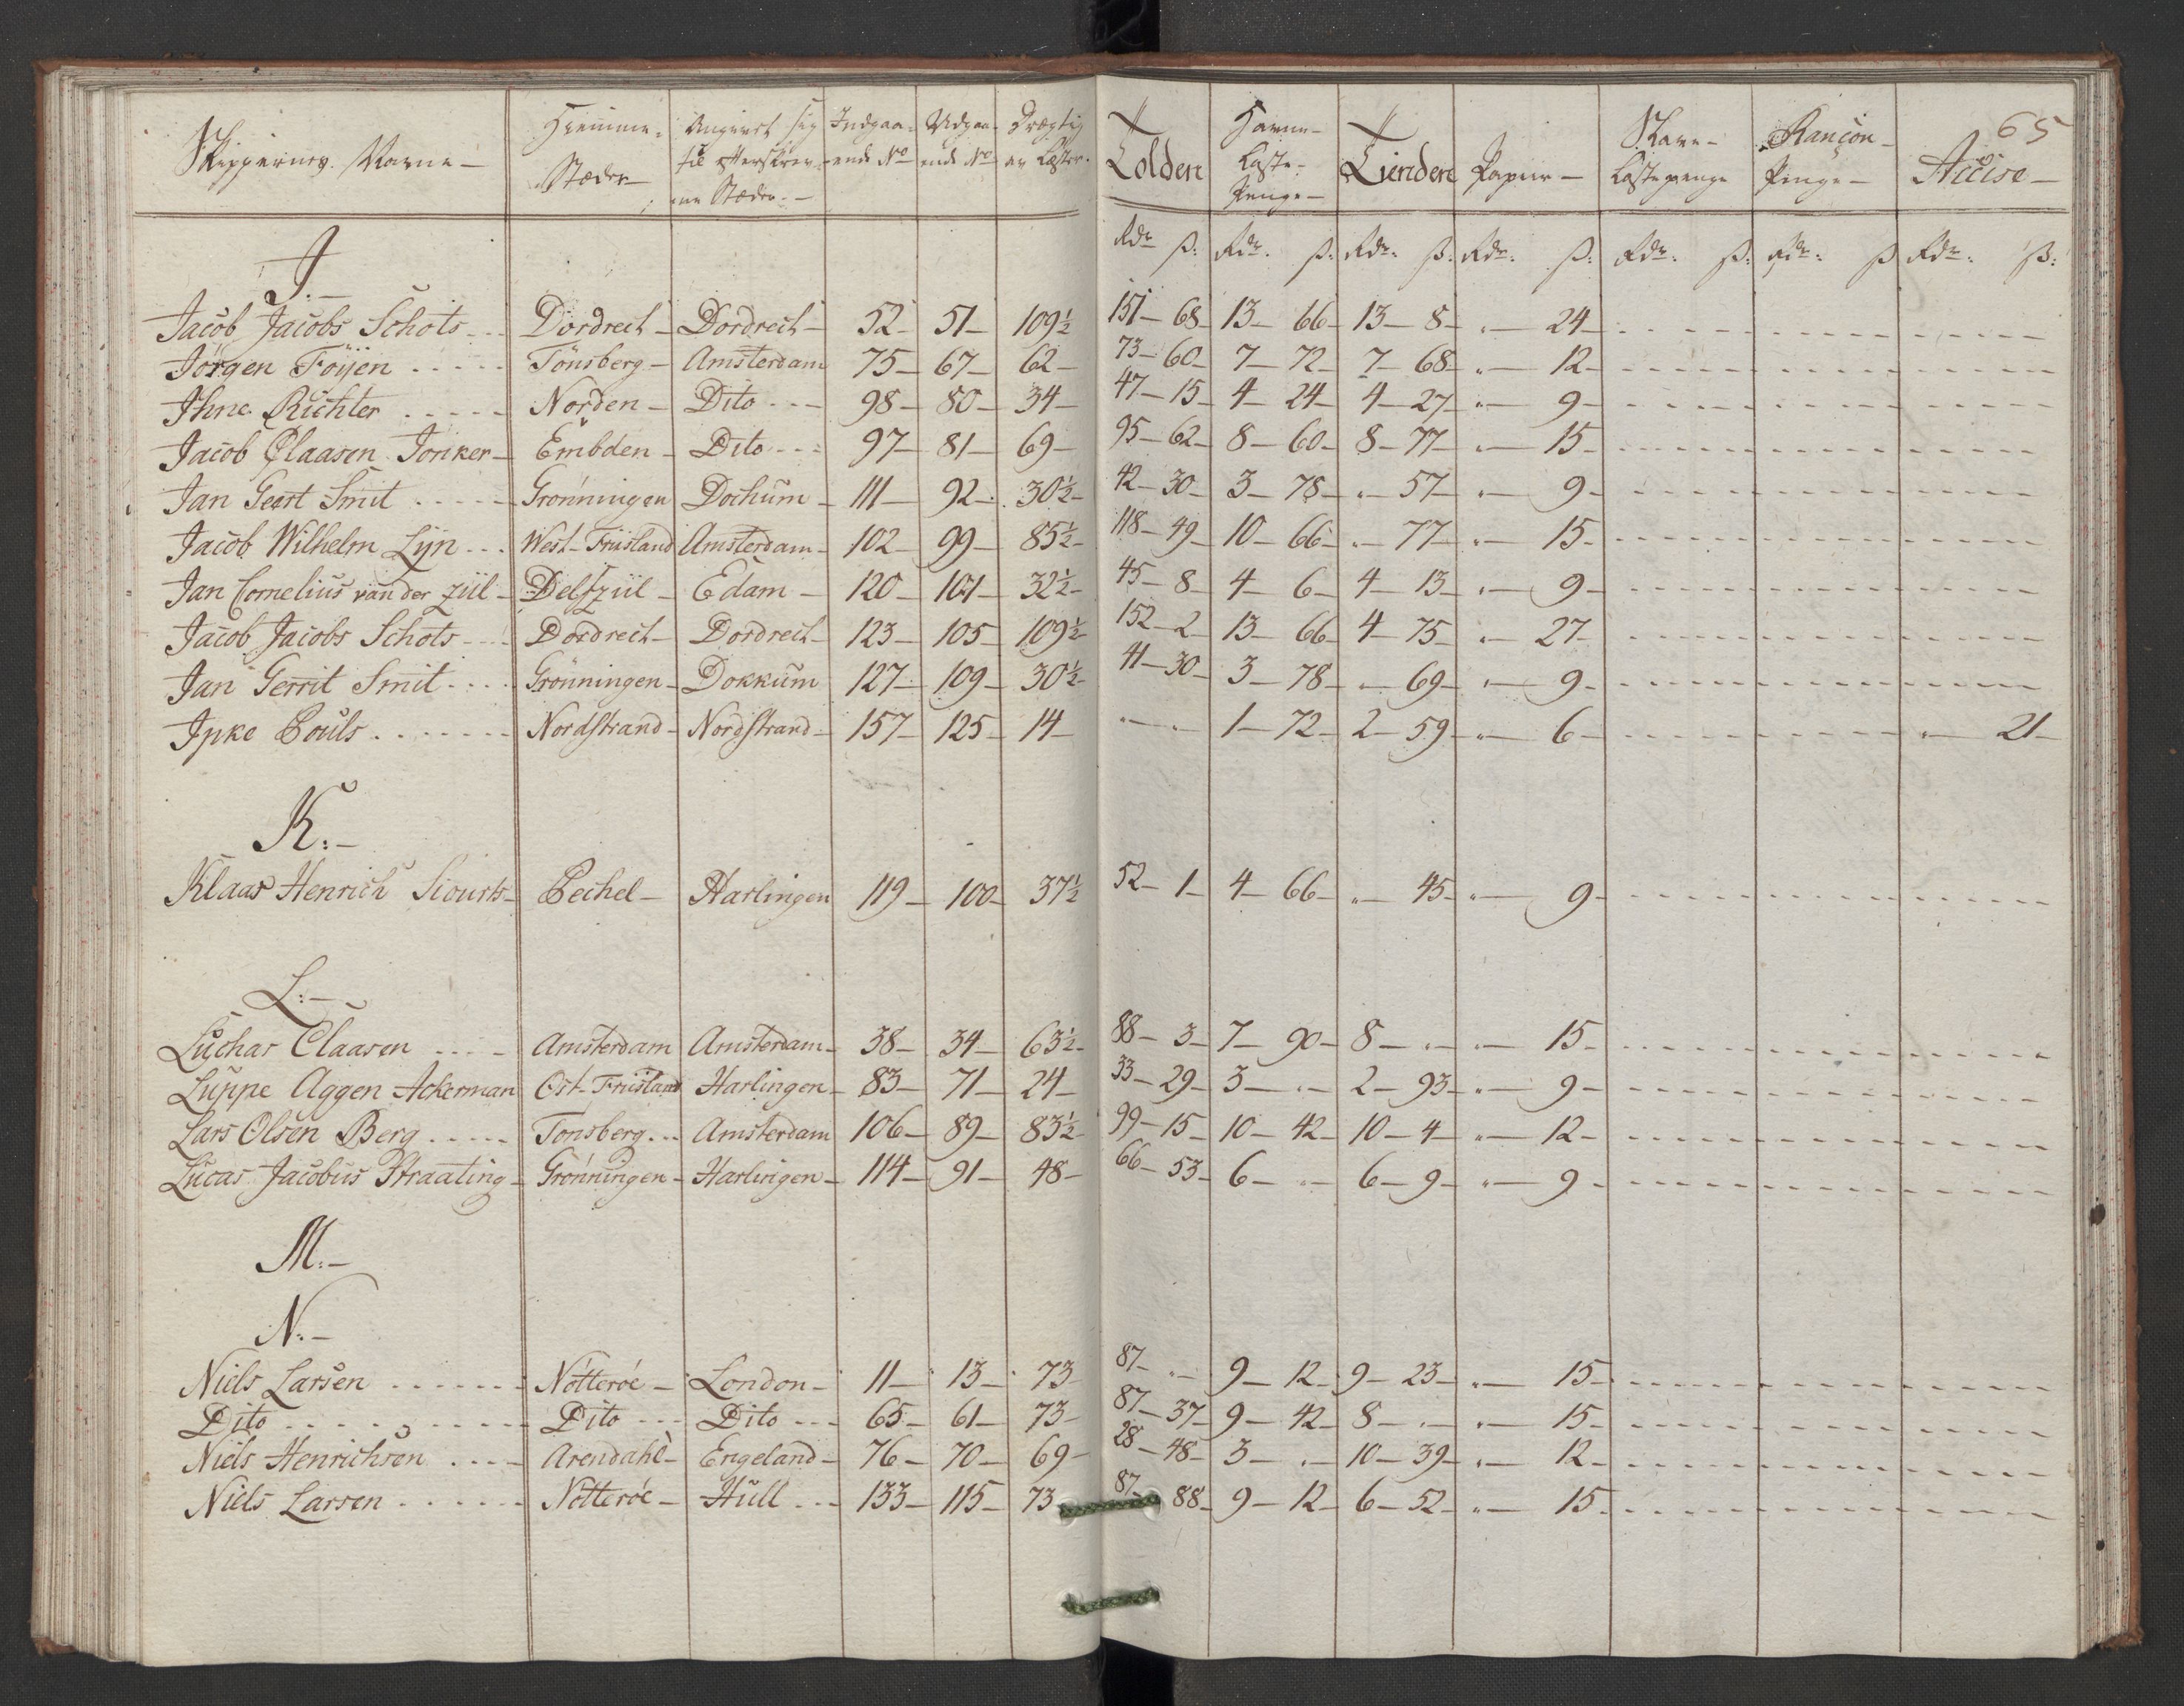 65
Skippernes Navne — Hiemme- Stæder — Angivet sig til efterskrev- ene Stæder. — Indgaa- ende No Udgaa- ende No Drægtig av Læster. Tolden Havne- Læste- Penge — Tienden Papiir — Skave- Læstepenge Rançon- Penge — Accise —
Rdr ß: Rdr. ß: Rdr. ß: Rdr: ß: Rdr: ß: Rdr: ß Rdr: ß:
J:—
Jacob Jacobs Schots - - Dordrect — Dordrect — 52 — 51 — 109½ 151 — 68 — 13 — 66 — 13 — 8 — „ — 24 —
Jörgen Föyen - - - - - Tönsberg — Amsterdam 75 — 67 — 62 — 73 — 60 — 7 — 72 — 7 — 68 — „ — 12 —
Jhne Richter - - - - - Norden — Dito - - — 98 — 80 — 34 — 47 — 15 — 4 — 24 — 4 — 27 — „ — 9 —
Jacob Claasen Jonker — Embden — Dito - - - 97 — 81 — 69 — 95 — 62 — 8 — 60 — 8 — 77 — „ — 15 —
Jan Geert Smit - - - - - Grönningen Dochum — 111 — 92 — 30½ — 42 — 30 — 3 — 78 — „ — 57 — „ — 9 —
Jacob Wilhelm Lyn - - - West-Friisland Amsterdam — 102 — 99 — 85½ — 118 — 49 — 10 — 66 — „ — 77 — „ — 15 —
Jan Cornelius van der Zül — Delfzül — Edam — 120 — 101 — 32½ — 45 — 8 — 4 — 6 — 4 — 13 — „ — 9 —
Jacob Jacobs Schots - - - Dordrect — Dordrect — 123 — 105 109½ — 152 — 2 13 — 66 4 — 75 — „ — 27 —
Jan Gerrit Smit - - - - Grönningen — Dokkum 127 — 109 — 30½ — 41 — 30 — 3 — 78 — „ — 69 — „ — 9 —
Jpke Pouls - - - - - - - Nordstrand — Nordstrand — 157 — 125 — 14 — „ — „ 1 — 72 — 2 — 59 — „ — 6 — „ — 21 —
K:—
Klaas Henrich Siourts — Pechel — Harlingen 119 — 100 — 37½ 52 — 1 — 4 — 66 — „ — 45 — „ — 9 —
L:—
Luchas Claasen - - - - Amsterdam Amsterdam — 38 — 34 — 63½ — 88 — 3 — 7 — 90 — 8 — „ — „ — 15 —
Luppe Aggen Ackerman Ost-Friisland Harlingen — 83 — 71 — 24 — 33 — 29 — 3 — „ — 2 — 93 — „ — 9 —
Lars Olsen Berg - - - - - Tonsberg - - Amsterdam 106 — 89 — 83½ — 99 — 15 — 10 — 42 — 10 — 4 — „ — 12 —
Lucas Jacobus Straating — Grönningen — Harlingen — 114 — 91 — 48 — 66 — 53 — 6 — „ — 6 — 9 — „ — 9 —
M:—
N:—
Niels Larsen - - - - - - Nötteröe — London — 11 — 13 — 73 — 87 — „ — 9 — 12 — 9 — 23 — „ — 15 —
Dito - - - - - - - - - Dito - - - Dito - - — 65 — 61 — 73 — 87 — 37 — 9 — 42 — 8 — „ — „ — 15 —
Niels Henrichsen - - - - Arendahl — Engeland — 76 — 70 — 69 — 28 — 48 — 3 — „ — 10 — 39 — „ — 12 —
Niels Larsen - - - - - - Nötteröe — Hull - - — 133 — 115 — 73 87 — 88 — 9 — 12 — 6 — 52 — „ — 15 —